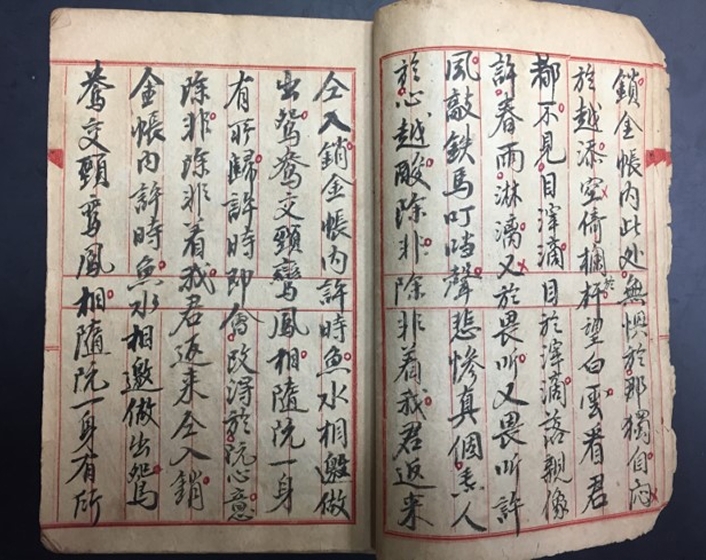 鎖金帳内此处無惧於那獨自悶
於越添空倚欄杆於望白雲看君
都不見目滓滴目於滓滴落親像
許春雨淋漓又於畏听又畏听許
風敲鉄馬叮噹聲悲慘真個害人
於心越酸除非除非着我君返来
仝入銷金帳内許時魚水相邀做
出鴛鴦交頸鸞鳳相隨阮一身
有所歸許時即會改得於阮心意
除非除非着我君返来仝入銷
金帳内許時魚水相邀做出鴛
鴦交頸鸞鳳相隨阮一身有所